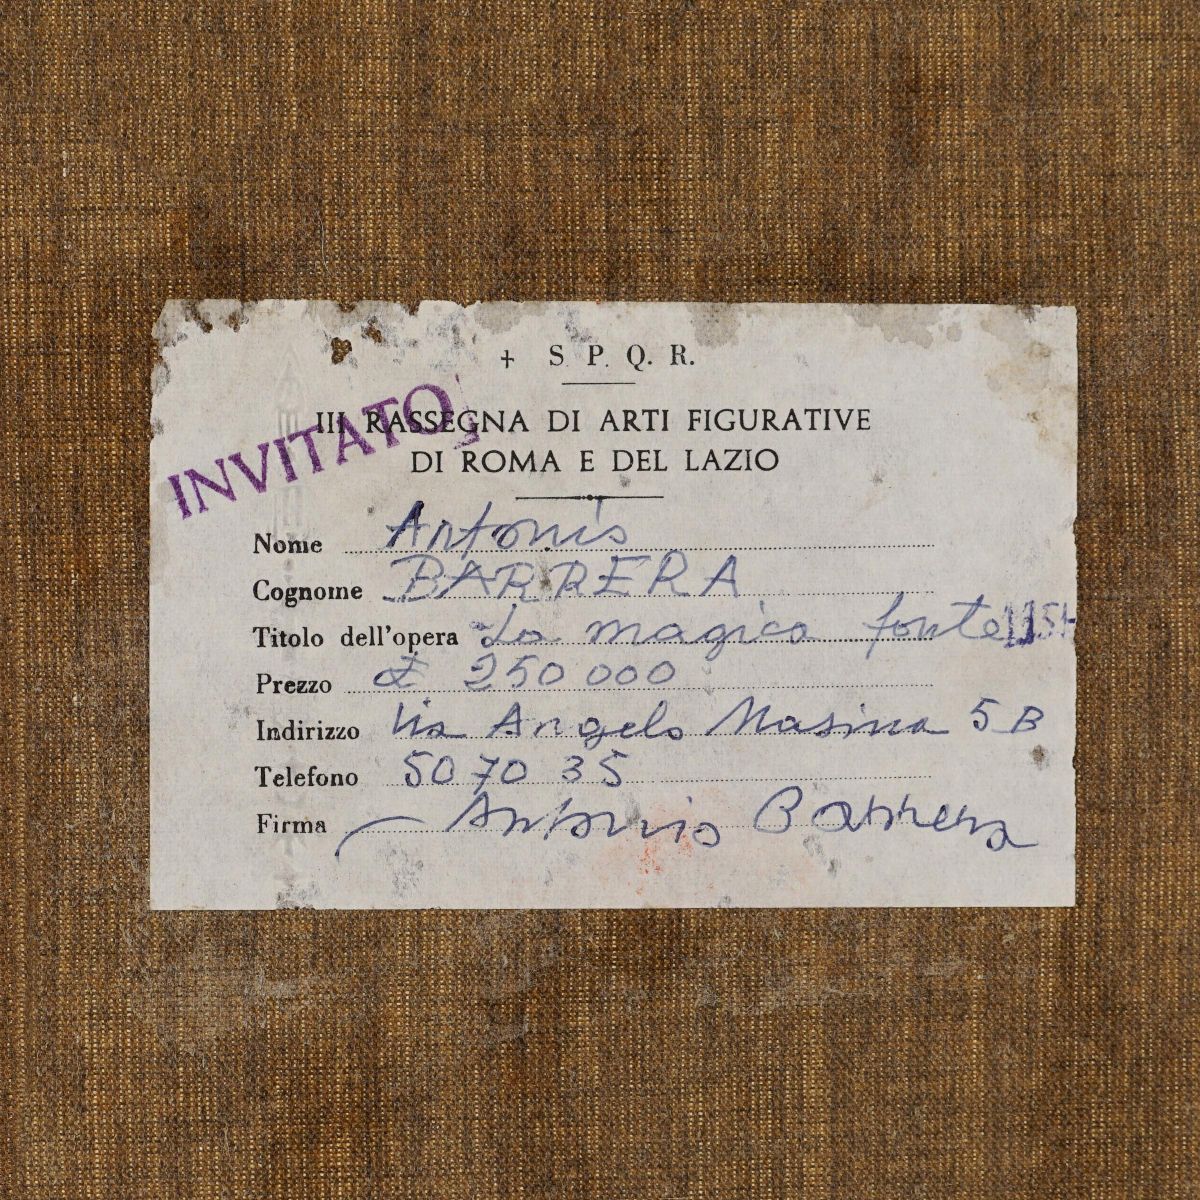 † S P. Q. R.
INVITATO
III RASSEGNA DI ARTI FIGURATIVE
DI ROMA E DEL LAZIO
Nome Antonio
Cognome BARRERA
Titolo dell'opera La magica fonte
Prezzo £ 250 000
Indirizzo Via Angelo Masina 5 B
Telefono 50 70 35
Firma Antonio Barrera